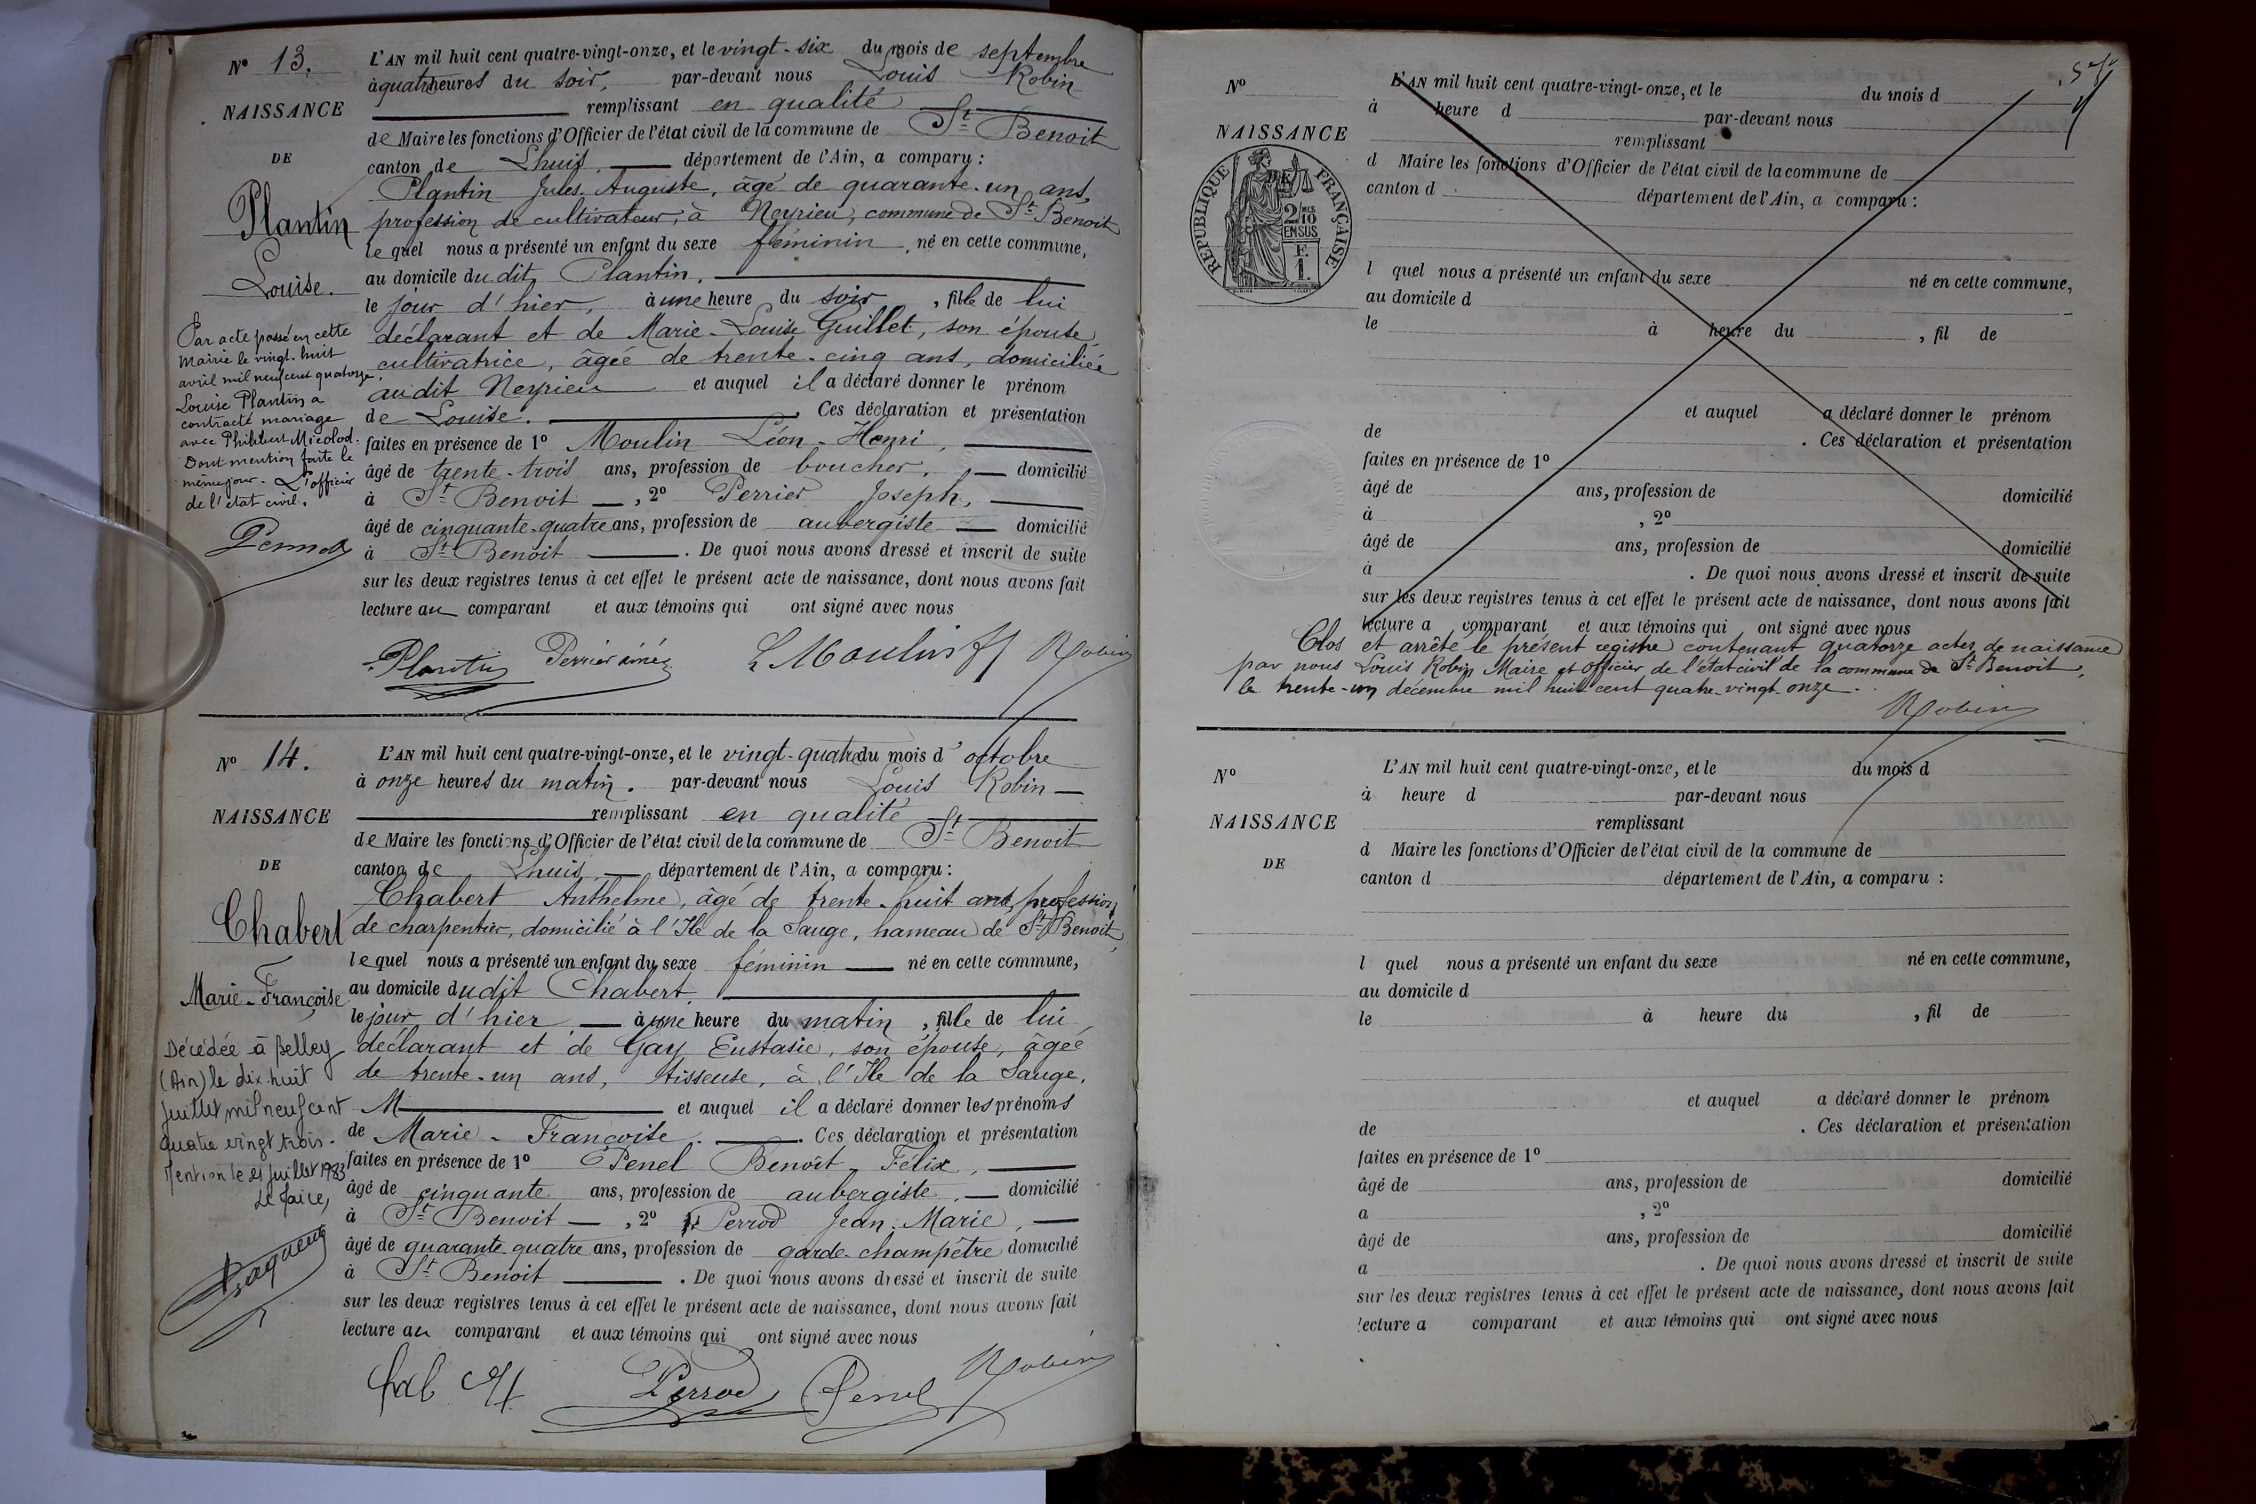 N° 13.
NAISSANCE
DE
Plantin
Louise.
Par acte passé en cette
Mairie le vingt-huit
avril mil neuf cent quatorze,
Louise Plantin a
contracté mariage
avec Philibert Micolod.
Dont mention faite le
même jour. L'officier
de l'état civil.
L'AN mil huit cent quatre-vingt-onze, et le vingt-six du mois de septembre
à quatre heures du soir, par-devant nous Louis Robin
remplissant en qualité
de Maire les fonctions d'Officier de l'état civil de la commune de St Benoit
canton de Lhuis, département de l'Ain, a comparu :
Plantin Jules Auguste, âgé de quarante-un ans,
profession de cultivateur, à Neyrieu, commune de St Benoit
lequel nous a présenté un enfant du sexe féminin, né en cette commune,
au domicile du dit Plantin,
le jour d'hier, à une heure du soir, fille de lui
déclarant et de Marie-Louise Guillet, son épouse,
cultivatrice, âgée de trente-cinq ans, domiciliée
au dit Neyrieu et auquel il a déclaré donner le prénom
de Louise. Ces déclaration et présentation
faites en présence de 1° Moulin Léon-Henri,
âgé de trente-trois ans, profession de boucher, domicilié
à St Benoit, 2° Perrier Joseph,
âgé de cinquante-quatre ans, profession de aubergiste domicilié
à St Benoit. De quoi nous avons dressé et inscrit de suite
sur les deux registres tenus à cet effet le présent acte de naissance, dont nous avons fait
lecture au comparant et aux témoins qui ont signé avec nous
Plantin Perrier ainé L Moulin Robin
N° 14.
NAISSANCE
DE
Chabert
Marie-Françoise
Décédée à Belley
(Ain) le dix-huit
juillet mil neuf cent
quatre vingt trois.
Mention le 21 juillet 1983
Le Maire,
L'AN mil huit cent quatre-vingt-onze, et le vingt-quatre du mois d'octobre
à onze heures du matin. par-devant nous Louis Robin
remplissant en qualité
de Maire les fonctions d'Officier de l'état civil de la commune de St Benoit
canton de Lhuis, département de l'Ain, a comparu :
Chabert Anthelme, âgé de trente-huit ans, profession
de charpentier, domicilié à l'Ile de la Sauge, hameau de St Benoit,
lequel nous a présenté un enfant du sexe féminin né en cette commune,
au domicile dudit Chabert,
le jour d'hier, à une heure du matin, fille de lui
déclarant et de Gay Eustasie, son épouse, âgée
de trente-un ans, tisseuse, à l'Ile de la Sauge,
M et auquel il a déclaré donner les prénoms
de Marie-Françoise. Ces déclaration et présentation
faites en présence de 1° Penel Benoît-Félix,
âgé de cinquante ans, profession de aubergiste, domicilié
à St Benoit, 2° Perrod Jean-Marie,
âgé de quarante quatre ans, profession de garde-champêtre domicilié
à St Benoit. De quoi nous avons dressé et inscrit de suite
sur les deux registres tenus à cet effet le présent acte de naissance, dont nous avons fait
lecture au comparant et aux témoins qui ont signé avec nous
Perrod Penel Robin
N°
NAISSANCE
DE
RÉPUBLIQUE FRANÇAISE
2/10
EN SUS
F.
1.
L'AN mil huit cent quatre-vingt-onze, et le du mois d
à heure d par-devant nous
remplissant
d Maire les fonctions d'Officier de l'état civil de la commune de
canton d département de l'Ain, a comparu :
l quel nous a présenté un enfant du sexe né en cette commune,
au domicile d
le à heure du , fil de
et auquel a déclaré donner le prénom
de . Ces déclaration et présentation
faites en présence de 1°
âgé de ans, profession de domicilié
à , 2°
âgé de ans, profession de domicilié
à . De quoi nous avons dressé et inscrit de suite
sur les deux registres tenus à cet effet le présent acte de naissance, dont nous avons fait
lecture a comparant et aux témoins qui ont signé avec nous
Clos et arrêté le présent registre contenant quatorze actes de naissance
par nous Louis Robin Maire et officier de l'état civil de la commune de St Benoit,
le trente-un décembre mil huit cent quatre-vingt-onze.
Robin
N°
NAISSANCE
DE
L'AN mil huit cent quatre-vingt-onze, et le du mois d
à heure d par-devant nous
remplissant
d Maire les fonctions d'Officier de l'état civil de la commune de
canton d département de l'Ain, a comparu :
l quel nous a présenté un enfant du sexe né en cette commune,
au domicile d
le à heure du , fil de
et auquel a déclaré donner le prénom
de . Ces déclaration et présentation
faites en présence de 1°
âgé de ans, profession de domicilié
a , 2°
âgé de ans, profession de domicilié
a . De quoi nous avons dressé et inscrit de suite
sur les deux registres tenus à cet effet le présent acte de naissance, dont nous avons fait
lecture a comparant et aux témoins qui ont signé avec nous